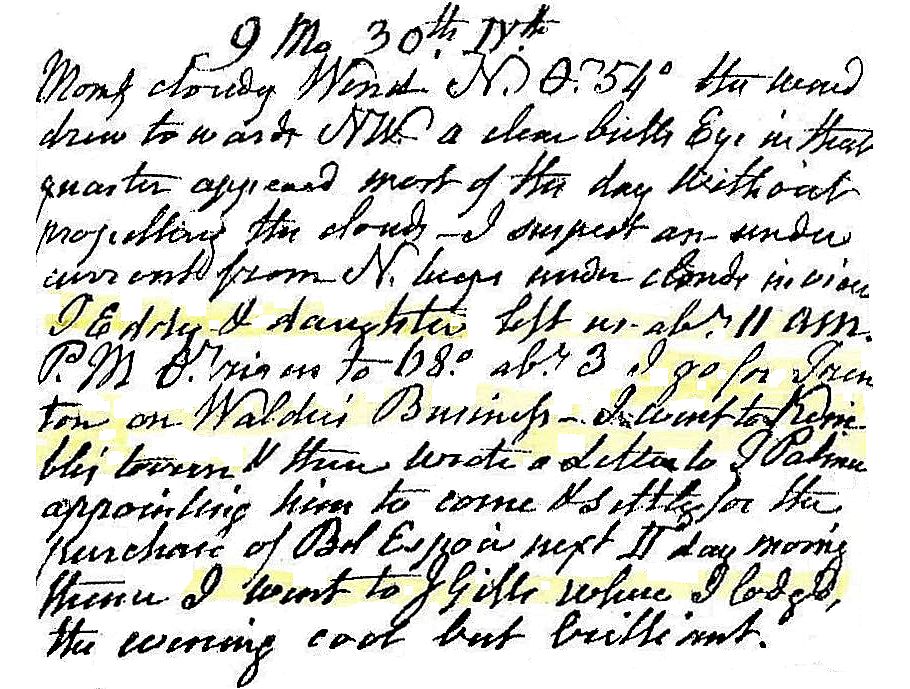 9 Mo 30th IVth
Morng cloudy Wind N. T.r 54° the wind
drew towards NW a clear bulls Eye in that
quarter appeared most of the day without
propelling the clouds - I suspect an under
current from N. keeps under clouds in view
I Eddy & daughter left us abt. 11 am.
P.M T.r risen to 68° abt. 3 I go for Tren
ton on Waldies Business - I went to Kim
bles tavern & then wrote a Letter to J Palmer
appointing him to come & settle for the
purchase of Bel Espoir next II day morng
thence I went to J Gills where I lodged,
the evening cool but brilliant.